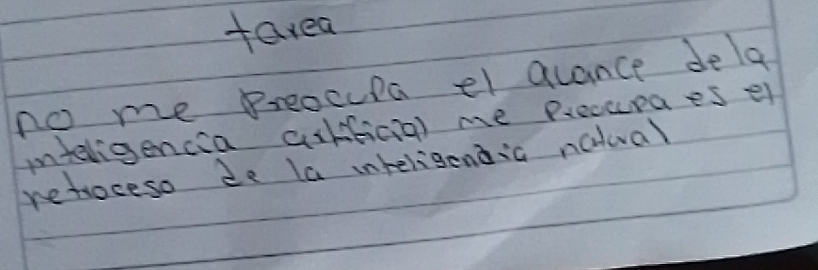 tarea
no me preocupa el avance dela
inteligencia artificial me preocupa es el
retroceso de la inteligencia natural